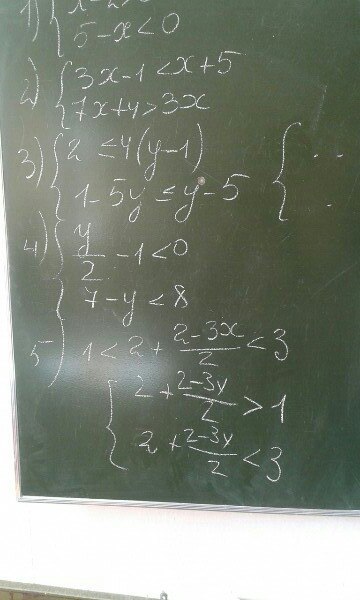 1)
5-x<0
2) { 3x-1<x+5
7x+4>3x
3) { 2≤4(y-1)
1-5y≤y-5
4) { y/2 -1<0
7-y<8
5) 1<2+ (2-3x)/2 <3
{ 2+ (2-3y)/2 >1
2+ (2-3y)/2 <3